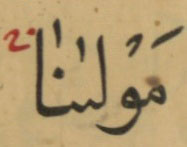 مَوْلٰىنَا